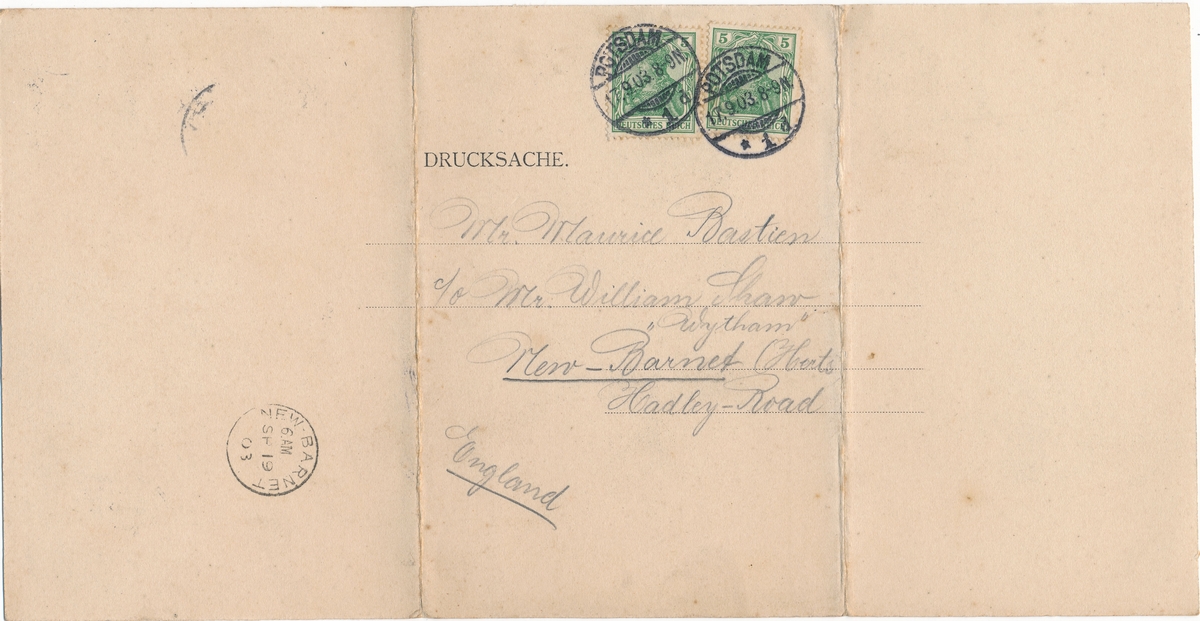 5 5 5
POTSDAM
17.9.03. 8-9N.
* 1 d
DEUTSCHES REICH
POTSDAM
17.9.03. 8-9N.
* 1 d
DEUTSCHES REICH
DRUCKSACHE.
Mr. Maurice Bastien
c/o Mr. William Shaw
„Wytham"
New-Barnet (Herts)
Hadley-Road
England
NEW-BARNET
6.AM
SP 19
03